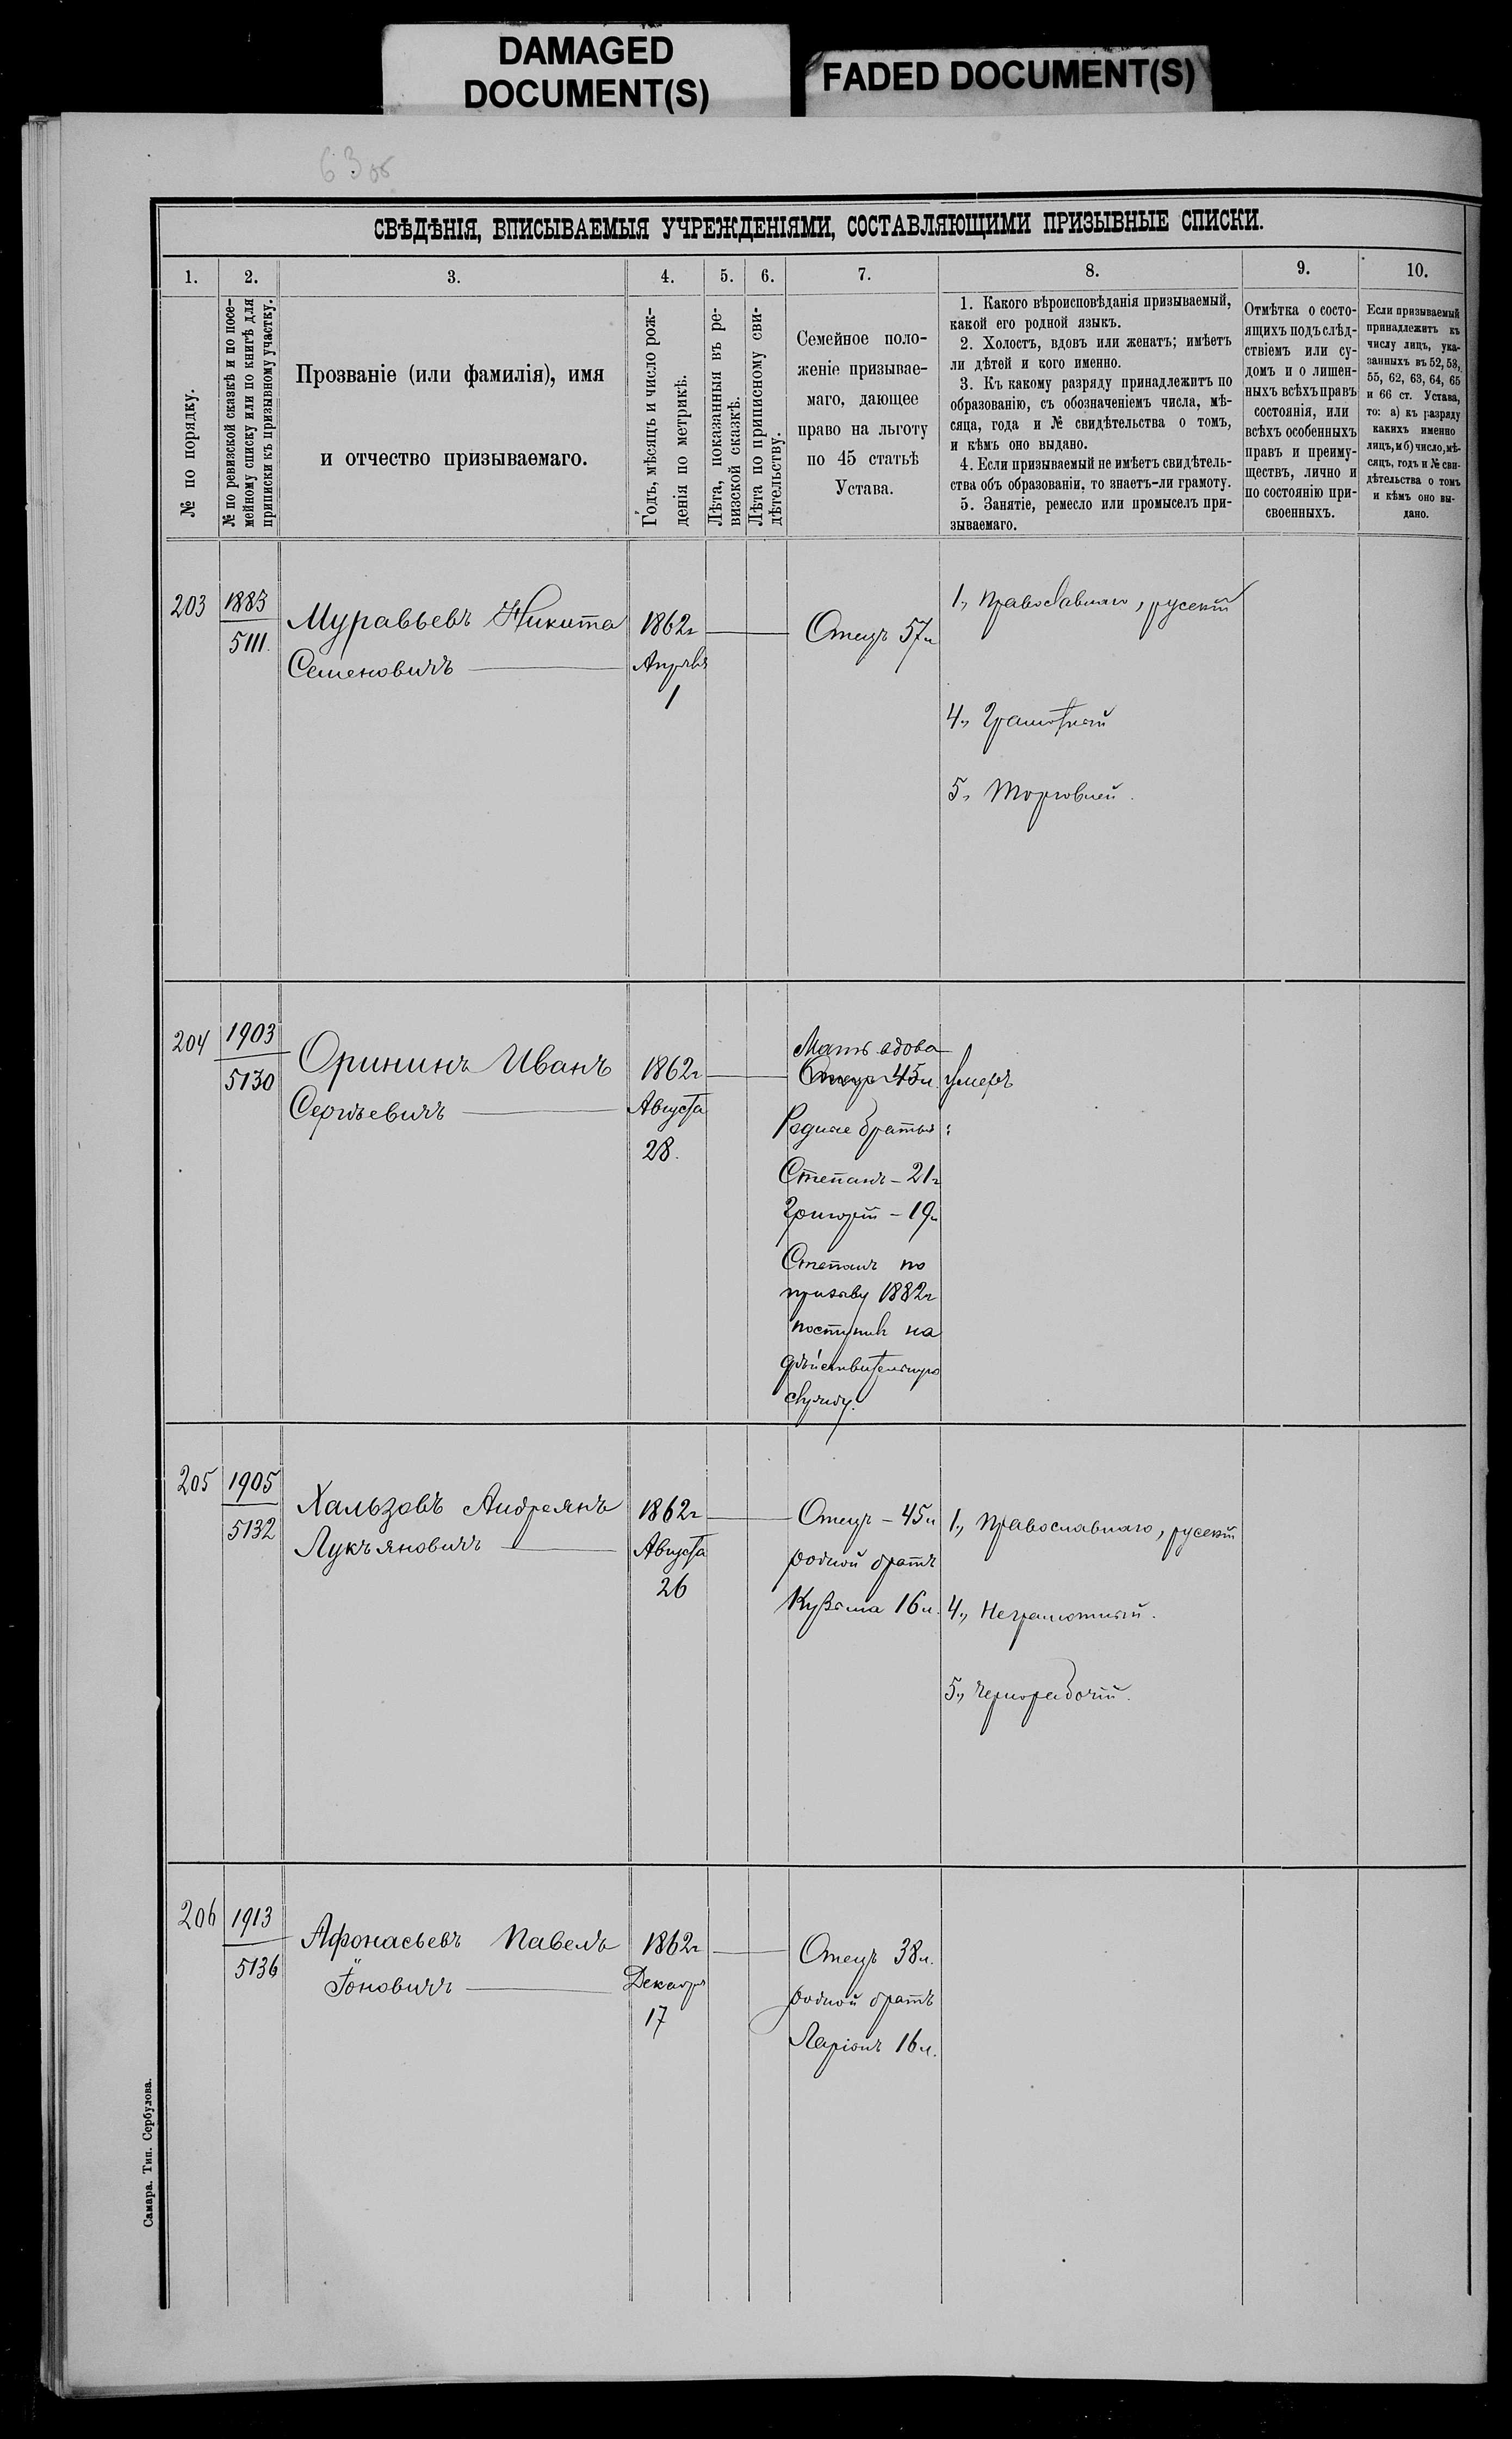 DAMAGED
DOCUMENT(S)
FADED DOCUMENT(S)
63 об
СВѢДѢНІЯ, ВПИСЫВАЕМЫЯ УЧРЕЖДЕНІЯМИ, СОСТАВЛЯЮЩИМИ ПРИЗЫВНЫЕ СПИСКИ.
1. 2. 3. 4. 5. 6. 7. 8. 9. 10.
№ по порядку.
№ по ревизской сказкѣ и по посе-
мейному списку или по книгѣ для
приписки къ призывному участку.
Прозваніе (или фамилія), имя
и отчество призываемаго.
Годъ, мѣсяцъ и число рож-
денія по метрикѣ.
Лѣта, показанныя въ ре-
визской сказкѣ.
Лѣта по приписному сви-
дѣтельству.
Семейное поло-
женіе призывае-
маго, дающее
право на льготу
по 45 статьѣ
Устава.
1. Какого вѣроисповѣданія призываемый,
какой его родной языкъ.
2. Холостъ, вдовъ или женатъ; имѣетъ
ли дѣтей и кого именно.
3. Къ какому разряду принадлежитъ по
образованію, съ обозначеніемъ числа, мѣ-
сяца, года и № свидѣтельства о томъ,
и кѣмъ оно выдано.
4. Если призываемый не имѣетъ свидѣтель-
ства объ образованіи, то знаетъ-ли грамоту.
5. Занятіе, ремесло или промыселъ при-
зываемаго.
Отмѣтка о состо-
ящихъ подъ слѣд-
ствіемъ или су-
домъ и о лишен-
ныхъ всѣхъ правъ
состоянія, или
всѣхъ особенныхъ
правъ и преиму-
ществъ, лично и
по состоянію при-
своенныхъ.
Если призываемый
принадлежитъ къ
числу лицъ, ука-
занныхъ въ 52, 53,
55, 62, 63, 64, 65
и 66 ст. Устава,
то: а) къ разряду
какихъ именно
лицъ, и б) число, мѣ-
сяцъ, годъ и № сви-
дѣтельства о томъ
и кѣмъ оно вы-
дано.
203
1883
5111.
Муравьевъ Никита
Семеновичъ
1862г
Апрѣля
1
Отецъ 57л
1., Православнаго, русскій
4., Грамотный
5., Торговлей.
204
1903
5130
Оринин Иванъ
Сергѣевичъ
1862г
Августа
28.
Мать вдова
Отецъ 45л. умеръ
Родные братья:
Степанъ - 21г
Григорій - 19л
Степанъ по
призыву 1882г
поступилъ на
дѣйствительную
службу.
205
1905
5132
Хальзовъ Андреянъ
Лукъяновичъ
1862г
Августа
26
Отецъ - 45л
родной братъ
Кузьма 16л.
1., Православнаго, русскій
4., Неграмотный.
5., Чернорабочій.
206
1913
5136
Афонасьевъ Павелъ
Іоновичъ
1862г
Декабря
17
Отецъ 38л.
родной братъ
Ларіонъ 16л.
Самара. Тип. Сербулова.